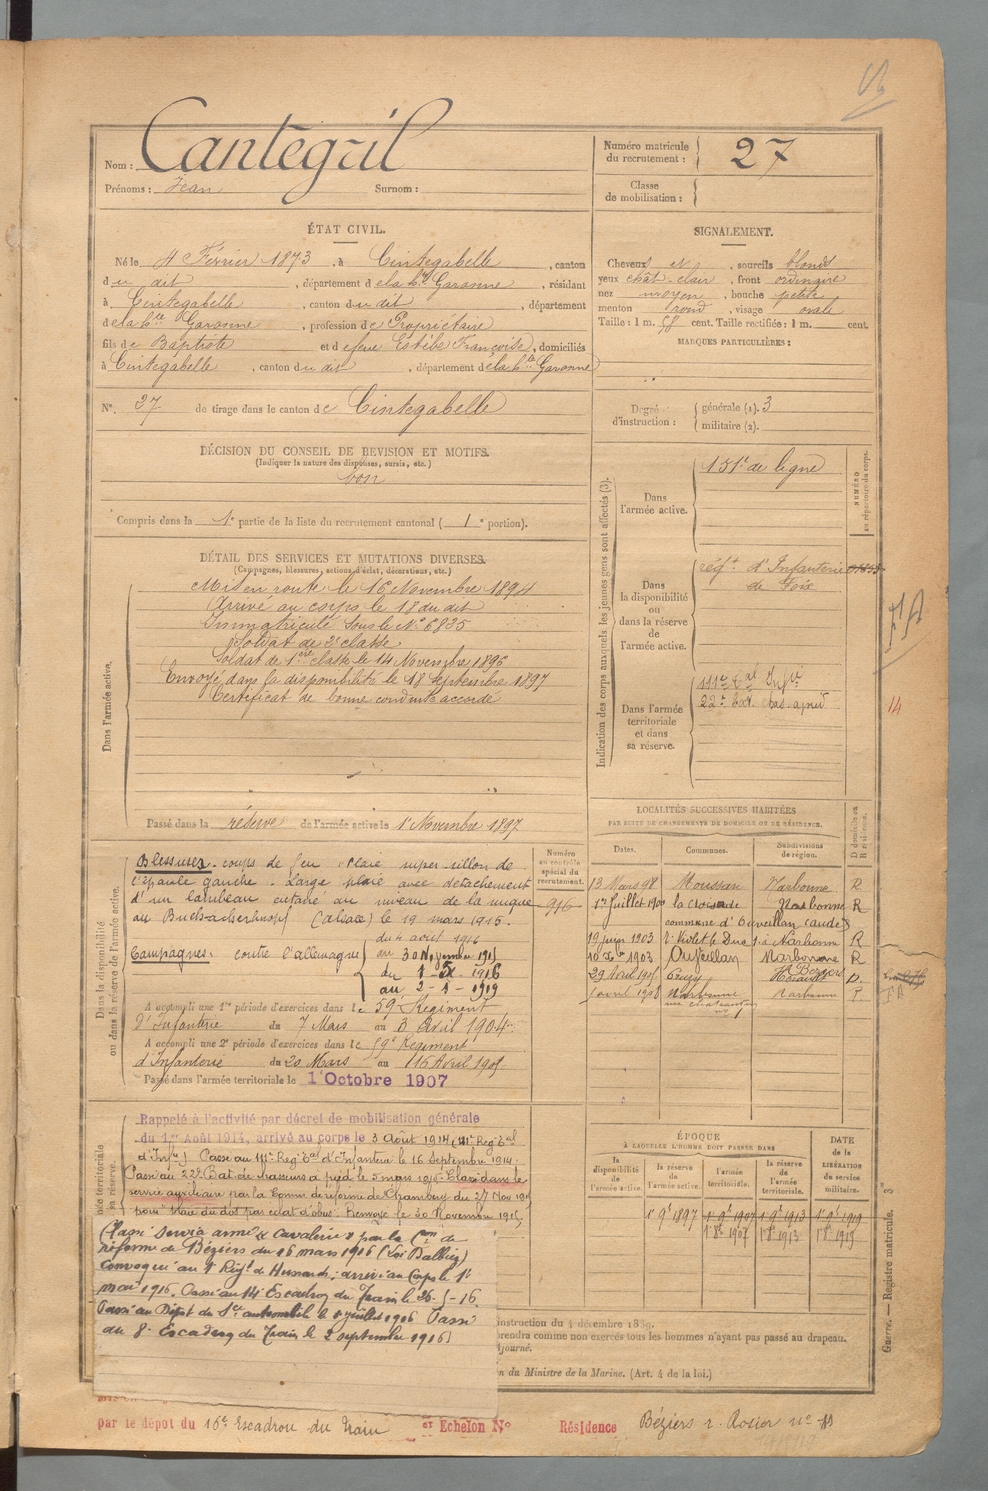 Nom : Cantegril
Prénoms : Jean Surnom :
Numéro matricule du recrutement : 27
Classe de mobilisation :
ÉTAT CIVIL.
Né le 4 Février 1873, à Cintegabelle, canton
du dit, département de la hte Garonne, résidant
à Cintegabelle, canton du dit, département
de la hte Garonne, profession de Propriétaire
fils de Baptiste et de feue Estèbe Françoise, domiciliés
à Cintegabelle, canton du dit, département de la hte Garonne
N°. 27 de tirage dans le canton de Cintegabelle
SIGNALEMENT.
Cheveux et, sourcils blonds
yeux chât-clair, front ordinaire
nez moyen, bouche petite
menton rond, visage ovale
Taille : 1 m. 58 cent. Taille rectifiée : 1 m. cent.
MARQUES PARTICULIÈRES :
Degré d'instruction : générale (1). 3
militaire (2).
DÉCISION DU CONSEIL DE REVISION ET MOTIFS.
(Indiquer la nature des dispenses, sursis, etc.)
bon
Compris dans la 1e partie de la liste du recrutement cantonal ( 1e portion).
DÉTAIL DES SERVICES ET MUTATIONS DIVERSES.
(Campagnes, blessures, actions d'éclat, décorations, etc.)
Dans l'armée active.
Mis en route le 16 Novembre 1894
Arrivé au corps le 18 du dit
Immatriculé sous le N° 6835
Soldat de 2e classe
Soldat de 1ère classe le 14 Novembre 1896
Envoyé dans la disponibilité le 18 Septembre 1897
Certificat de bonne conduite accordé
Passé dans la réserve de l'armée active le 1er Novembre 1897
Indication des corps auxquels les jeunes gens sont affectés (3).
NUMÉRO au répertoire du corps.
Dans l'armée active.
151e de ligne
Dans la disponibilité ou dans la réserve de l'armée active.
régt. d'Infanterie
de Foix
Dans l'armée territoriale et dans sa réserve.
111e tal Infie
22e bat. chas. à pied
14
Dans la disponibilité ou dans la réserve de l'armée active.
Numéro au contrôle spécial du recrutement.
916
Blessures. coups de feu. Plaie super sillon de
l'épaule gauche. Large plaie avec détachement
d'un lambeau cutané au niveau de la nuque
au (alsace) le 19 mars 1915.
du 4 août 1914
Campagnes: contre l'allemagne au 30 Novembre 1915
du 1-5-1916
au 2-1-1919
A accompli une 1re période d'exercices dans le 59e Régiment
d'Infanterie du 7 Mars au 3 Avril 1904
A accompli une 2e période d'exercices dans le 59e Régiment
d'Infanterie du 20 Mars au 16 Avril 1905
Passé dans l'armée territoriale le 1er Octobre 1907
LOCALITÉS SUCCESSIVES HABITÉES
PAR SUITE DE CHANGEMENTS DE DOMICILE OU DE RÉSIDENCE.
Dates. Communes. Subdivisions de région. D domicile ou R résidence.
13 Mars 98 Moussan Narbonne R
1er Juillet 1900 la Croisade Narbonne R
commune d'Ouveillan (aude)
19 juin 1903 Narbonne R
1903 Ouveillan Narbonne R
29 Avril 1905 Béziers D.
1 avril 1908 Narbonne Narbonne
Rappelé à l'activité par décret de mobilisation générale
du 1er Août 1914, arrivé au corps le 3 Août 1914 (111e Reg tal
d'Infie) Passé au 111e Reg tal d'Infanterie le 16 Septembre 1914.
Passé au 22e Bat. de chasseurs à pied le 5 mars 1915. Classé dans le
service auxiliaire par la Comon de réforme de Chambéry du 27 Nov 1915
pour "Plaie du dos par éclat d'obus. Renvoyé le 30 Novembre 1915.
(Passé Service armé par la Con de
réforme de Béziers du 16 mars 1916 (Loi Dalbiez)
convoqué au 1er Régt de Hussards; arrivé au Corps le 1er
mai 1916. Passé au 14e Escadron du Train le 26-5-16.
Passé au Dépôt du Sce automobile le 1 juillet 1916 Passé
au 8e Escadron du Train le 2 septembre 1916)
ÉPOQUE
À LAQUELLE L'HOMME DOIT PASSER DANS
la disponibilité de l'armée active. la réserve de l'armée active. l'armée territoriale. la réserve de l'armée territoriale. DATE de la LIBÉRATION du service militaire.
1er 9e 1897 1er 9e 1907 1er 9e 1913 1er 9e 1919
1er 8e 1907 1er 8e 1913 1er 8e 1919
instruction du 4 décembre 1889.
prendra comme non exercés tous les hommes n'ayant pas passé au drapeau.
Ajourné.
on du Ministre de la Marine. (Art. 4 de la loi.)
Guerre. — Registre matricule. 3e
par le dépôt du 16e Escadron du Train et Echelon N° Résidence Béziers r. Rosier no 13